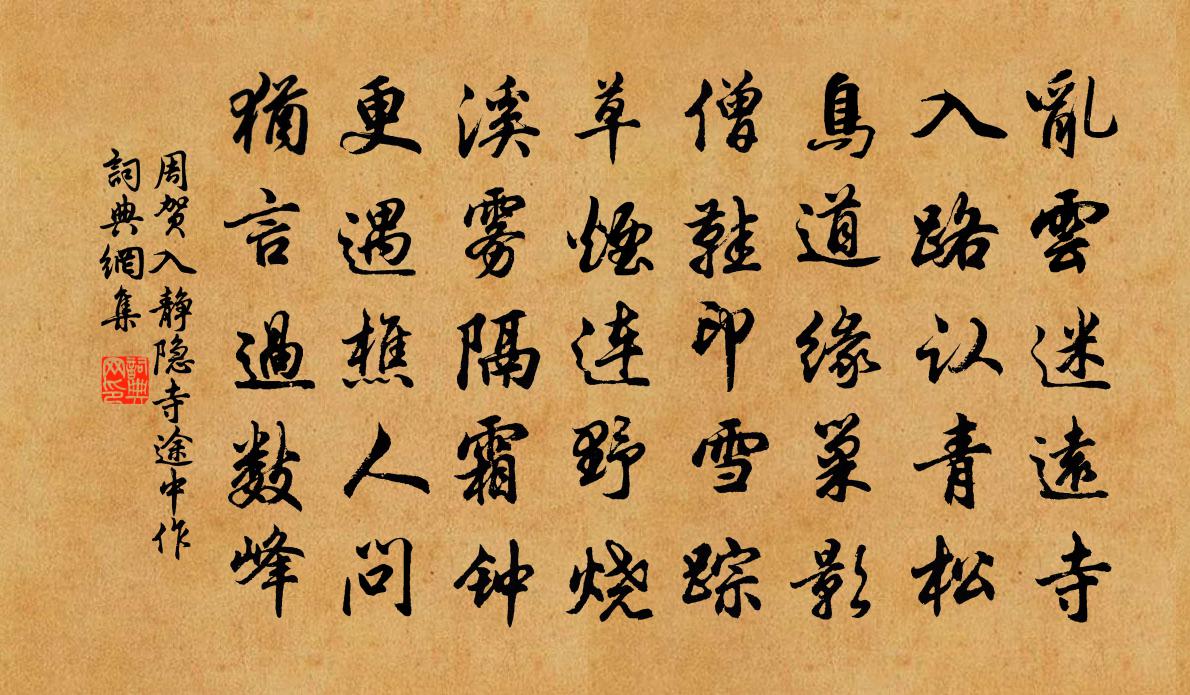 亂雲迷遠寺
入路认青松
鳥道緣巢影
僧鞋印雪踪
草煙连野烧
溪雾隔霜钟
更遇樵人问
猶言過数峰
周贺入静隐寺途中作
詞典網集
詞典网印